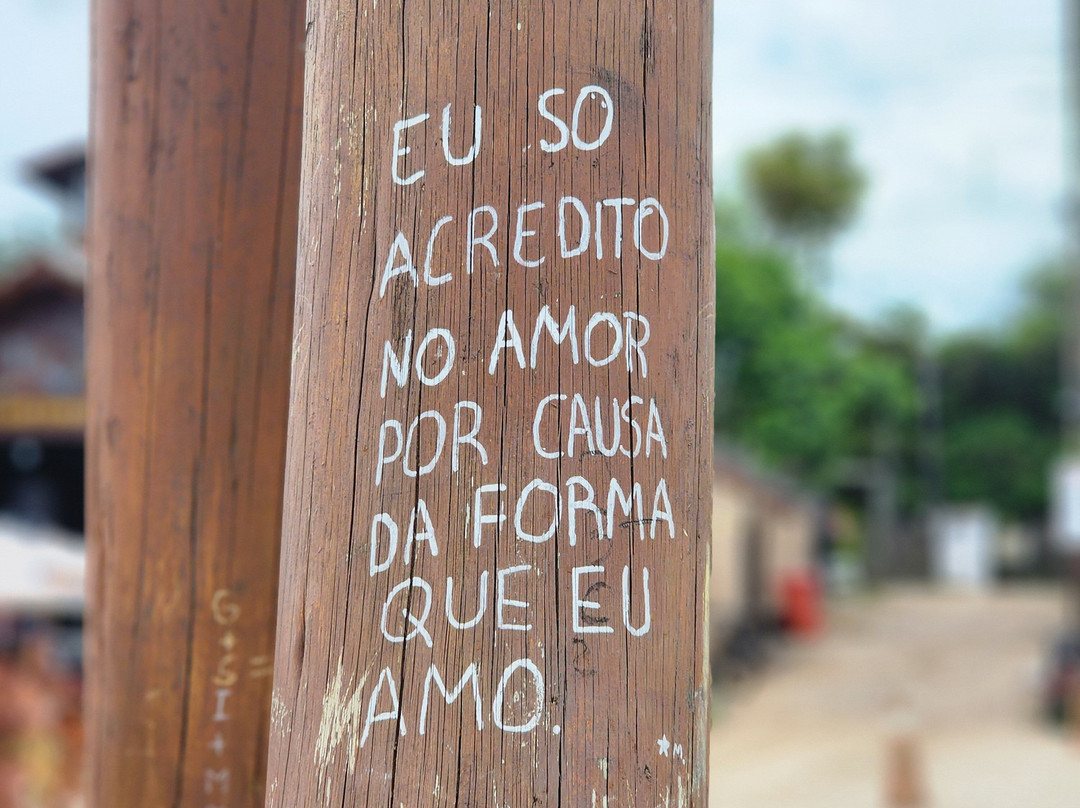 EU SO
ACREDITO
NO AMOR
POR CAUSA
DA FORMA
QUE EU
AMO.
★M
G+S
=
I+M